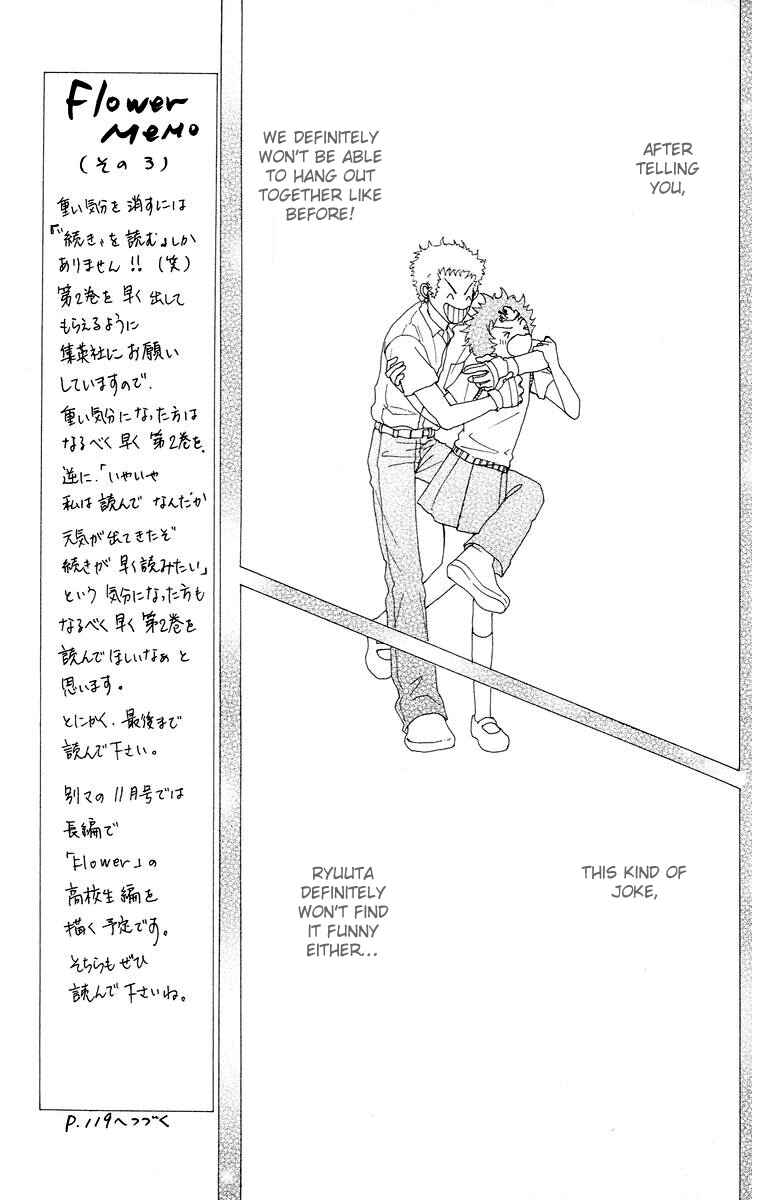 AFTER
TELLING
YOU,
WE DEFINITELY
WON'T BE ABLE
TO HANG OUT
TOGETHER LIKE
BEFORE!
THIS KIND OF
JOKE,
RYUUTA
DEFINITELY
WON'T FIND
IT FUNNY
EITHER...
Flower
MEMO
(その3)
重い気分を消すには
『"続き"を読む』しか
ありません!!(笑)
第2巻を早く出して
もらえるように
集英社にお願い
していますので、
重い気分になった方は
なるべく早く第2巻を、
逆に、「いやいや
私は読んでなんだか
元気が出てきたぞ
続きが早く読みたい」
という気分になった方も
なるべく早く第2巻を
読んでほしいなぁと
思います。
とにかく、最後まで
読んで下さい。
別マの11月号では
長編で
「Flower」の
高校生編を
描く予定です。
そちらもぜひ
読んで下さいね。
P.119へつづく